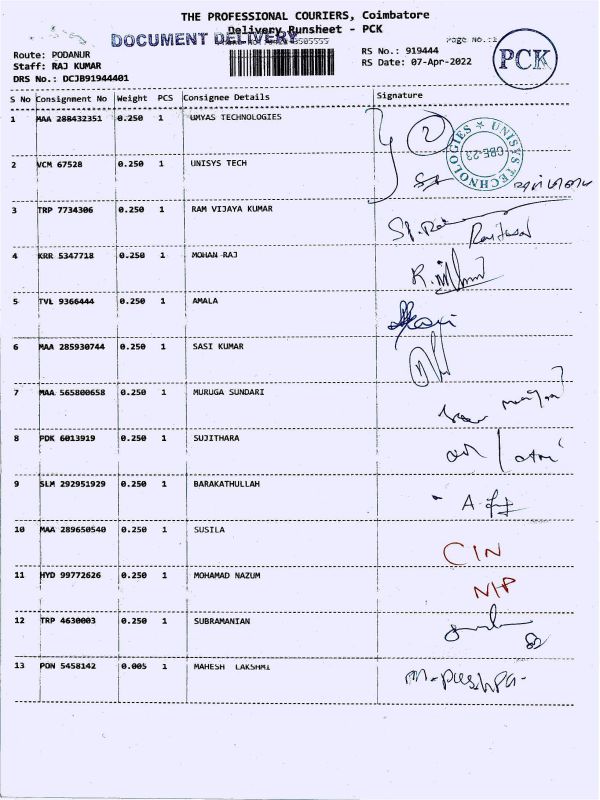 THE PROFESSIONAL COURIERS, Coimbatore
Delivery Runsheet - PCK
DOCUMENT DELIVERY
Page No.:1
PCK
Route: PODANUR
Staff: RAJ KUMAR
DRS No.: DCJB91944401
RS No.: 919444
RS Date: 07-Apr-2022
S No Consignment No Weight PCS Consignee Details Signature
1 MAA 288432351 0.250 1 UMYAS TECHNOLOGIES
2
UNISYS TECHNOLOGIES
CBE-23
2 VCM 67528 0.250 1 UNISYS TECH
3 TRP 7734306 0.250 1 RAM VIJAYA KUMAR
4 KRR 5347718 0.250 1 MOHAN RAJ
5 TVL 9366444 0.250 1 AMALA
6 MAA 285930744 0.250 1 SASI KUMAR
7 MAA 565800658 0.250 1 MURUGA SUNDARI
8 PDK 6013919 0.250 1 SUJITHARA
9 SLM 292951929 0.250 1 BARAKATHULLAH
10 MAA 289650540 0.250 1 SUSILA
CIN
11 HYD 99772626 0.250 1 MOHAMAD NAZUM
NIP
12 TRP 4630003 0.250 1 SUBRAMANIAN
13 PON 5458142 0.005 1 MAHESH LAKSHMI
M-Pushpa-